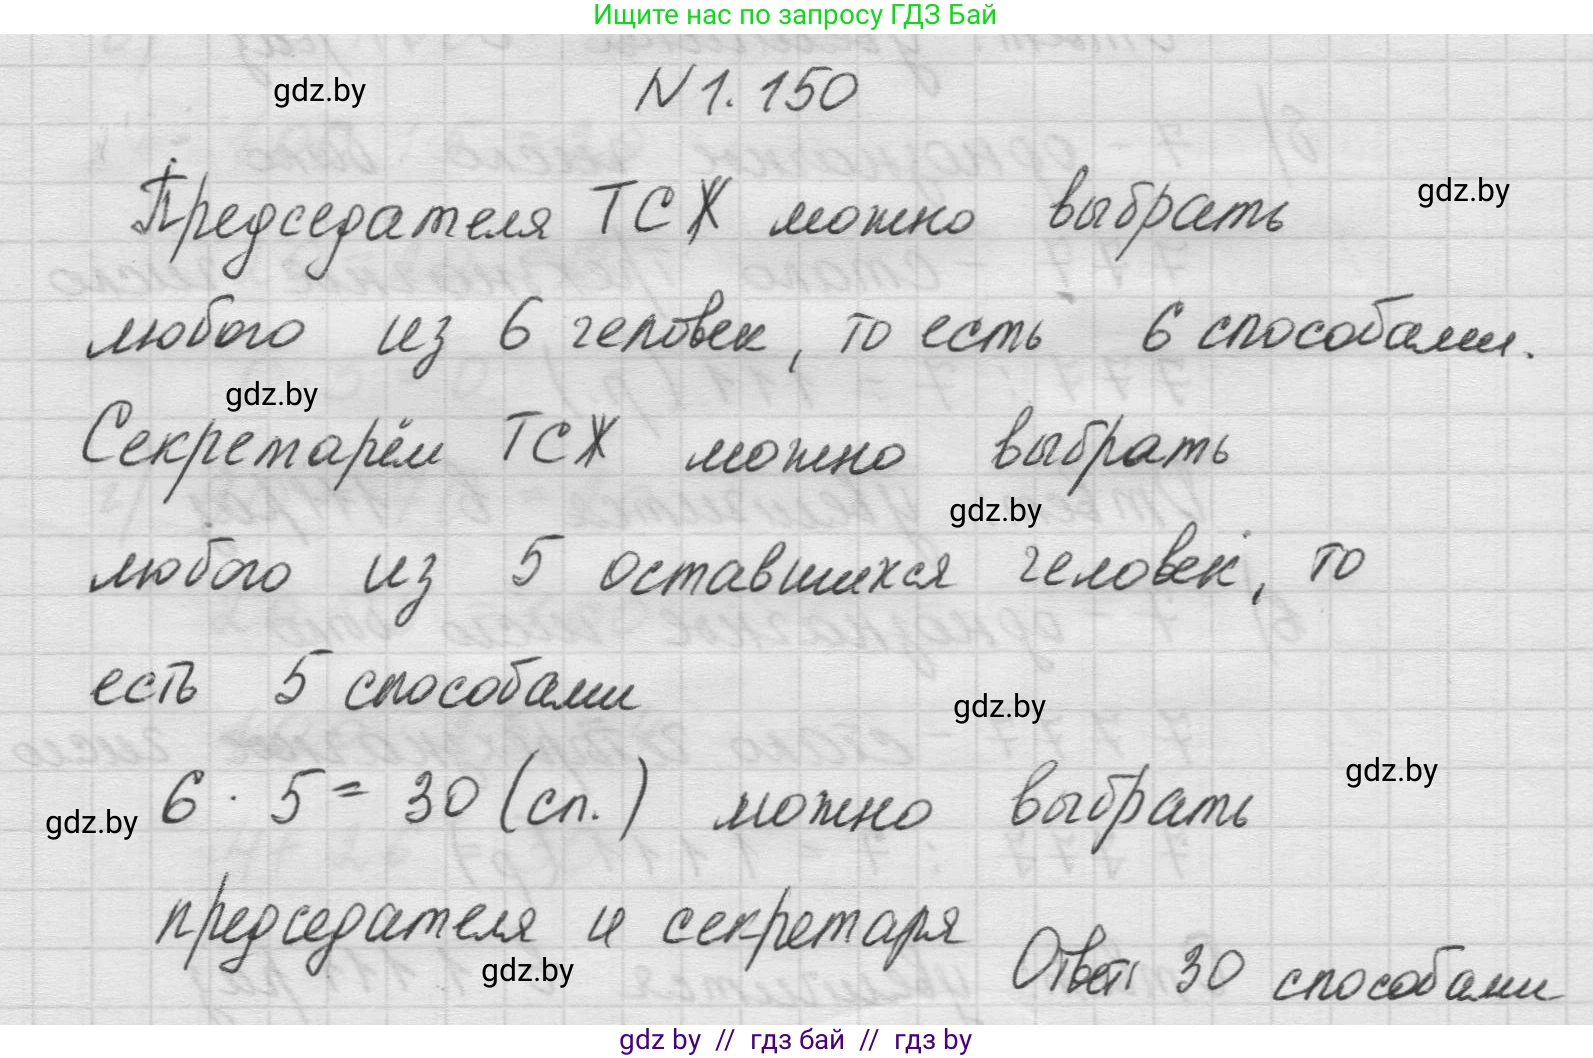 Ищите нас по запросу ГДЗ Бай
gdz.by
N 1. 150
gdz.by
Председателя ТСЖ можно выбрать
любого из 6 человек, то есть 6 способами.
gdz.by
Секретарём ТСЖ можно выбрать
gdz.by
любого из 5 оставшихся человек, то
есть 5 способами
gdz.by
gdz.by
gdz.by
6 · 5 = 30 (сп.) можно выбрать
председателя и секретаря
gdz.by
Ответ: 30 способами
gdz by // гдз бай // гдз by